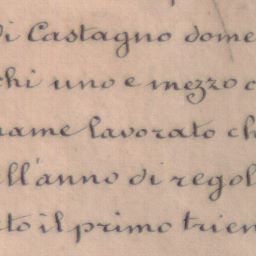 di Castagno dome
chi uno e mezzo c
name lavorato ch
ell'anno di regol
to il primo trien